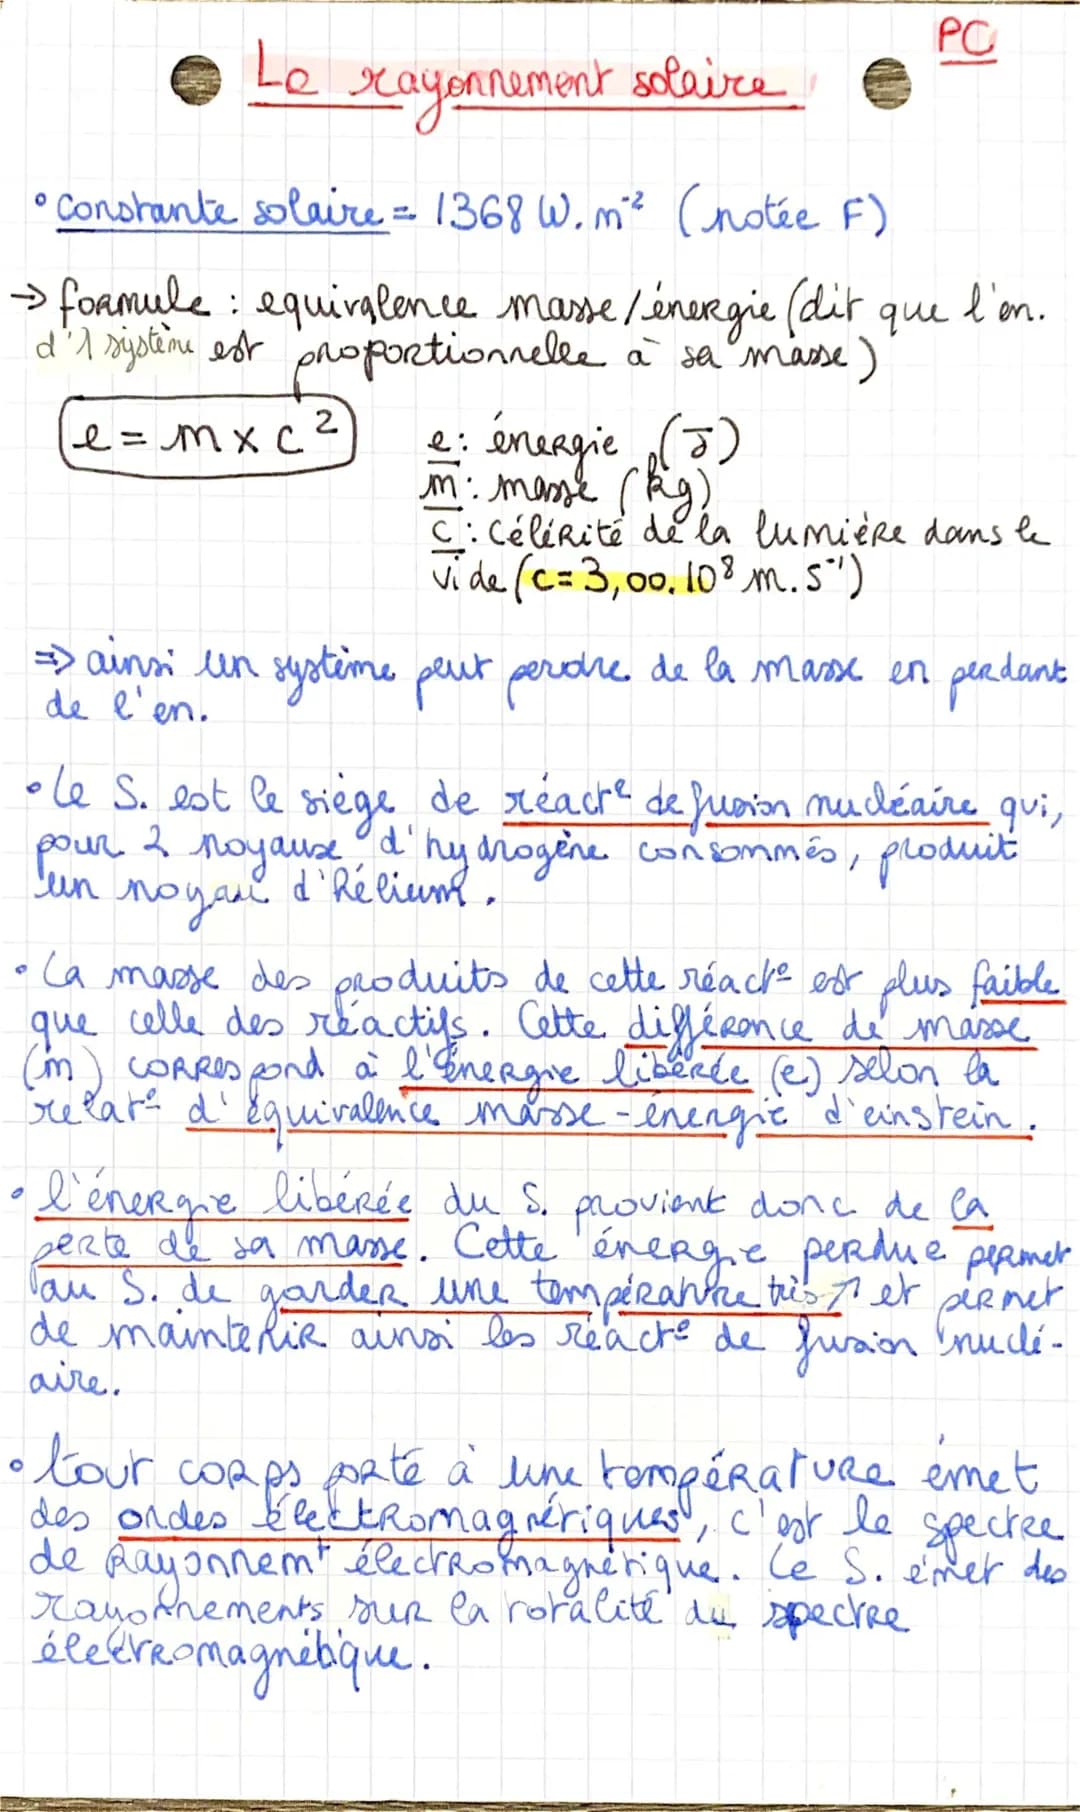 PC
Le rayonnement solaire
• Constante solaire = 1368 W.m⁻² (notée F)
→ formule : equivalence masse/énergie (dit que l'en.
d'1 système est proportionnelle à sa masse)
e = m x c²
e : énergie (J)
m : masse (kg)
c : célérité de la lumière dans le
vide (c = 3,00.10⁸ m.s⁻¹)
⇒ ainsi un système peut perdre de la masse en perdant
de l'en.
• Le S. est le siège de réactº de fusion nucléaire qui,
pour 2 noyaux d'hydrogène consommés, produit
un noyau d'hélium.
• La masse des produits de cette réactº est plus faible
que celle des réactifs. Cette différence de masse
(m) correspond à l'énergie libérée (e) selon la
relatº d'équivalence masse-énergie d'einstein.
• l'énergie libérée du S. provient donc de la
perte de sa masse. Cette énergie perdue permet
au S. de garder une température très ↗ et permet
de maintenir ainsi les réactº de fusion nuclé-
aire.
• tout corps porté à une température émet
des ondes électromagnétiques, c'est le spectre
de Rayonnemt électromagnétique. Le S. émet des
rayonnements sur la totalité du spectre
électromagnétique.